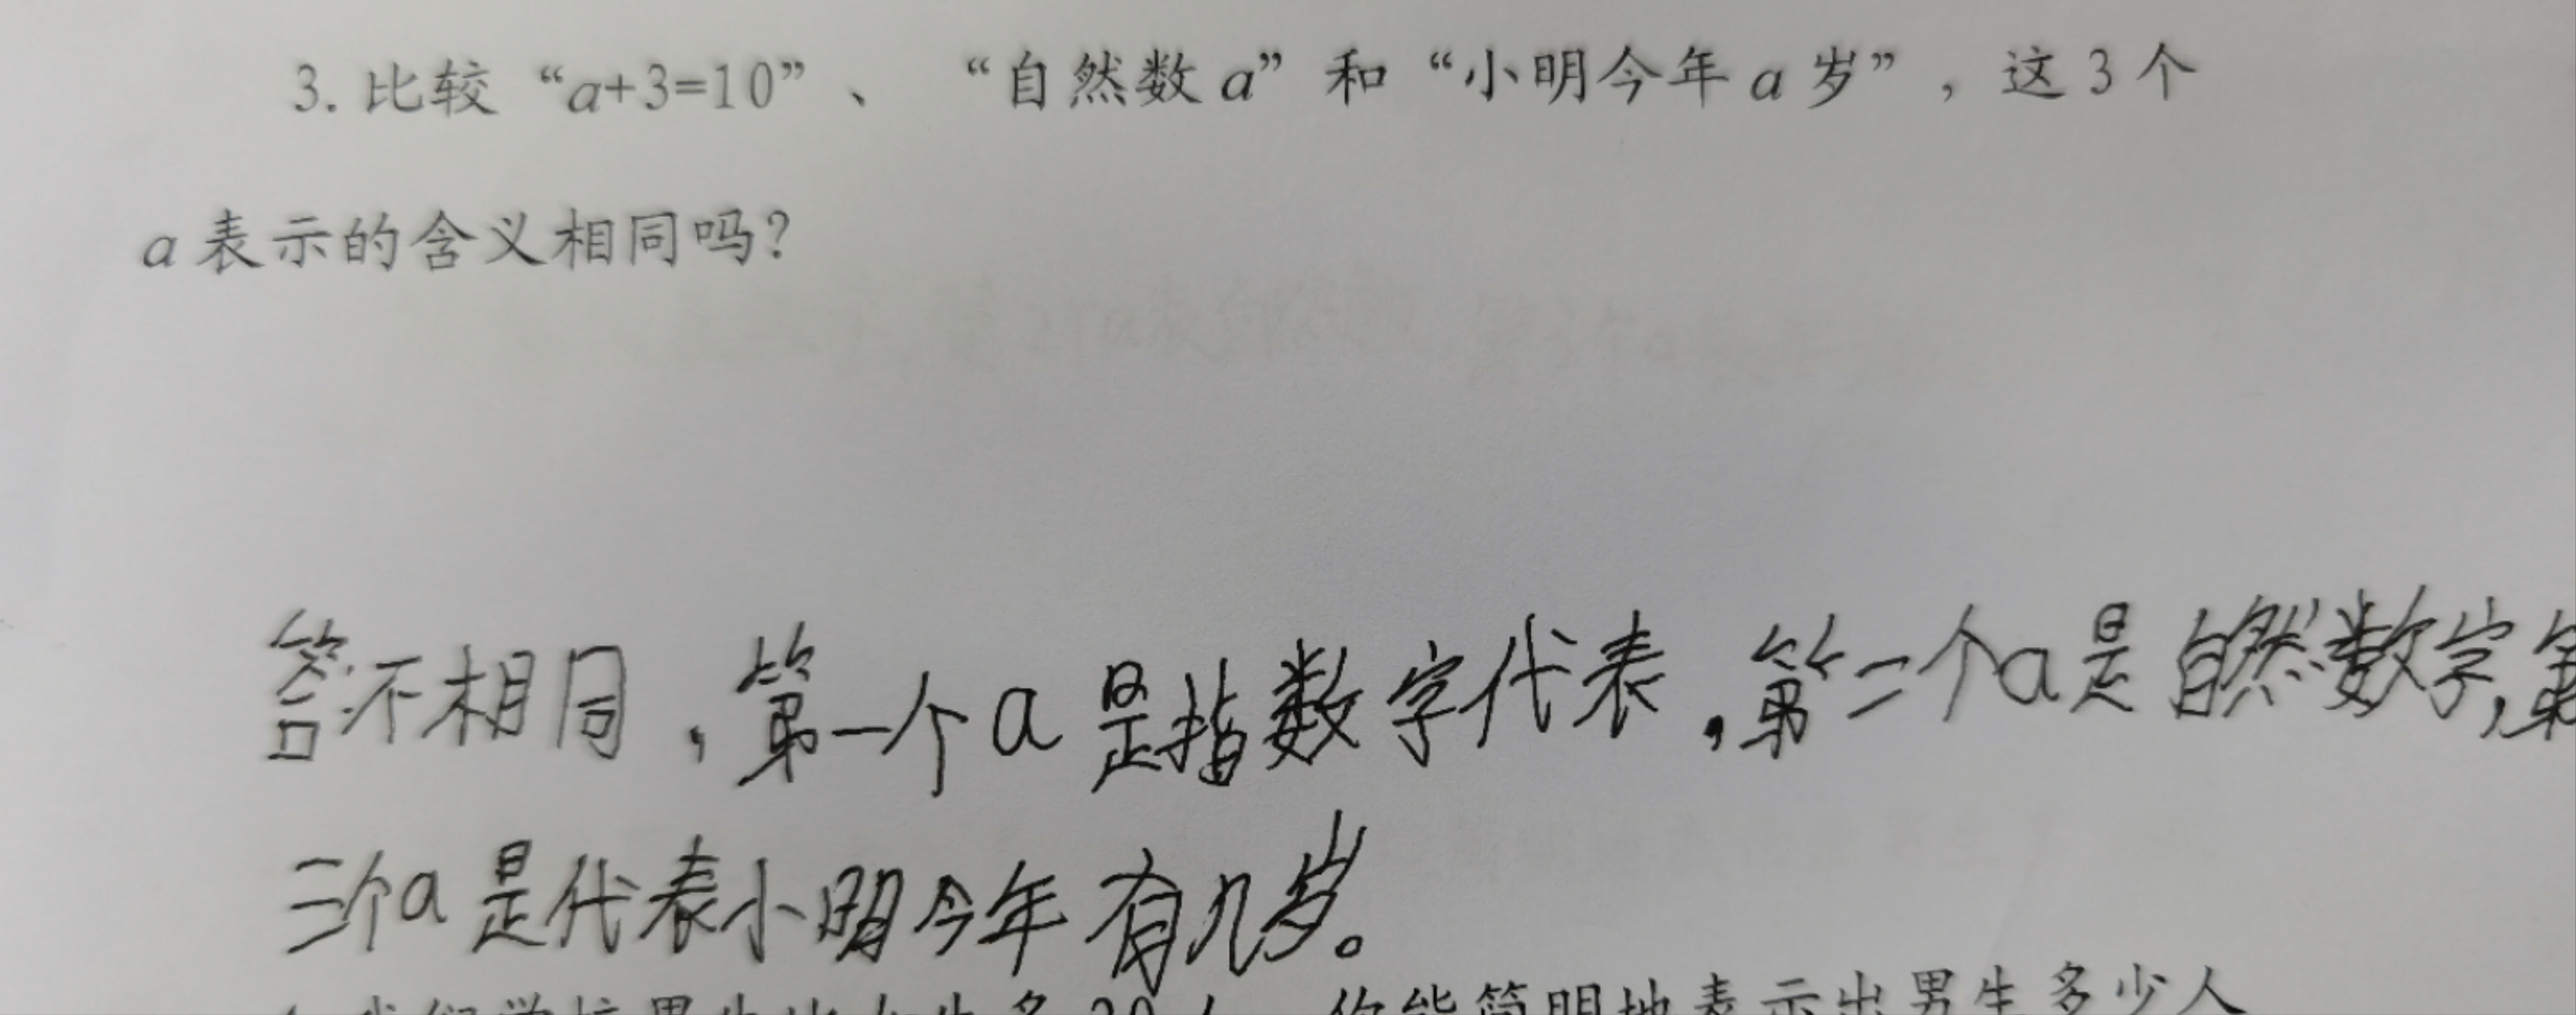 3. 比较“a+3=10”、 “自然数a”和“小明今年a岁”，这3个
a表示的含义相同吗？
答:不相同，第一个a是指数字代表，第二个a是自然数字，第
三个a是代表小明今年有几岁。
你能简明地表示出男生多少人